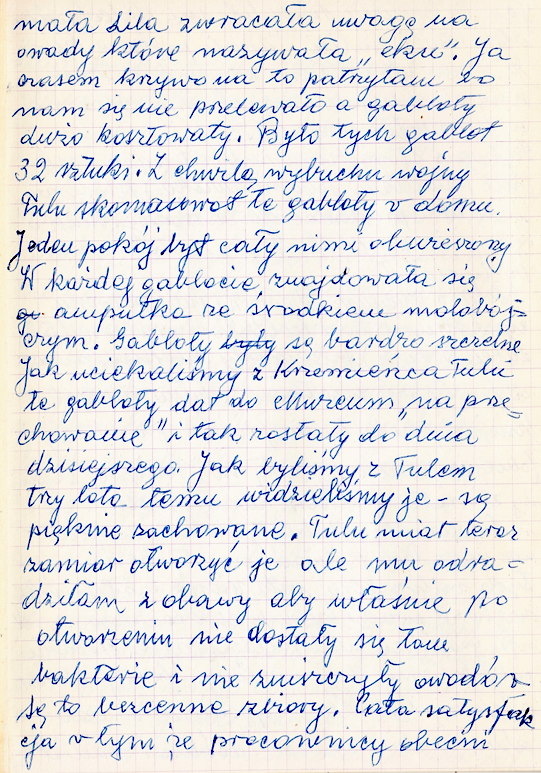 mała Lila zwracała uwagę na
owady które nazywała „eku". Ja
czasem krzywo na to patrzyłam bo
nam się nie przelewało a gabloty
dużo kosztowały. Było tych gablot
32 sztuki. Z chwilą wybuchu wojny
Tulu skomasował te gabloty w domu.
Jeden pokój był cały nimi obwieszony
W każdej gablocie znajdowała się
ampułka ze środkiem molobój-
czym. Gabloty były są bardzo szczelne
Jak uciekaliśmy z Krzemieńca Tulu
te gabloty dał do Muzeum „na prze-
chowanie" i tak zostały do dnia
dzisiejszego. Jak byliśmy z Tulem
trzy lata temu widzieliśmy je - są
pięknie zachowane. Tulu miał teraz
zamiar otworzyć je ale mu odra-
dziłam z obawy aby właśnie po
otworzeniu nie dostały się tam
bakterie i nie zniszczyły owadów
są to bezcenne zbiory. Cała satysfak
cja w tym że pracownicy obecni